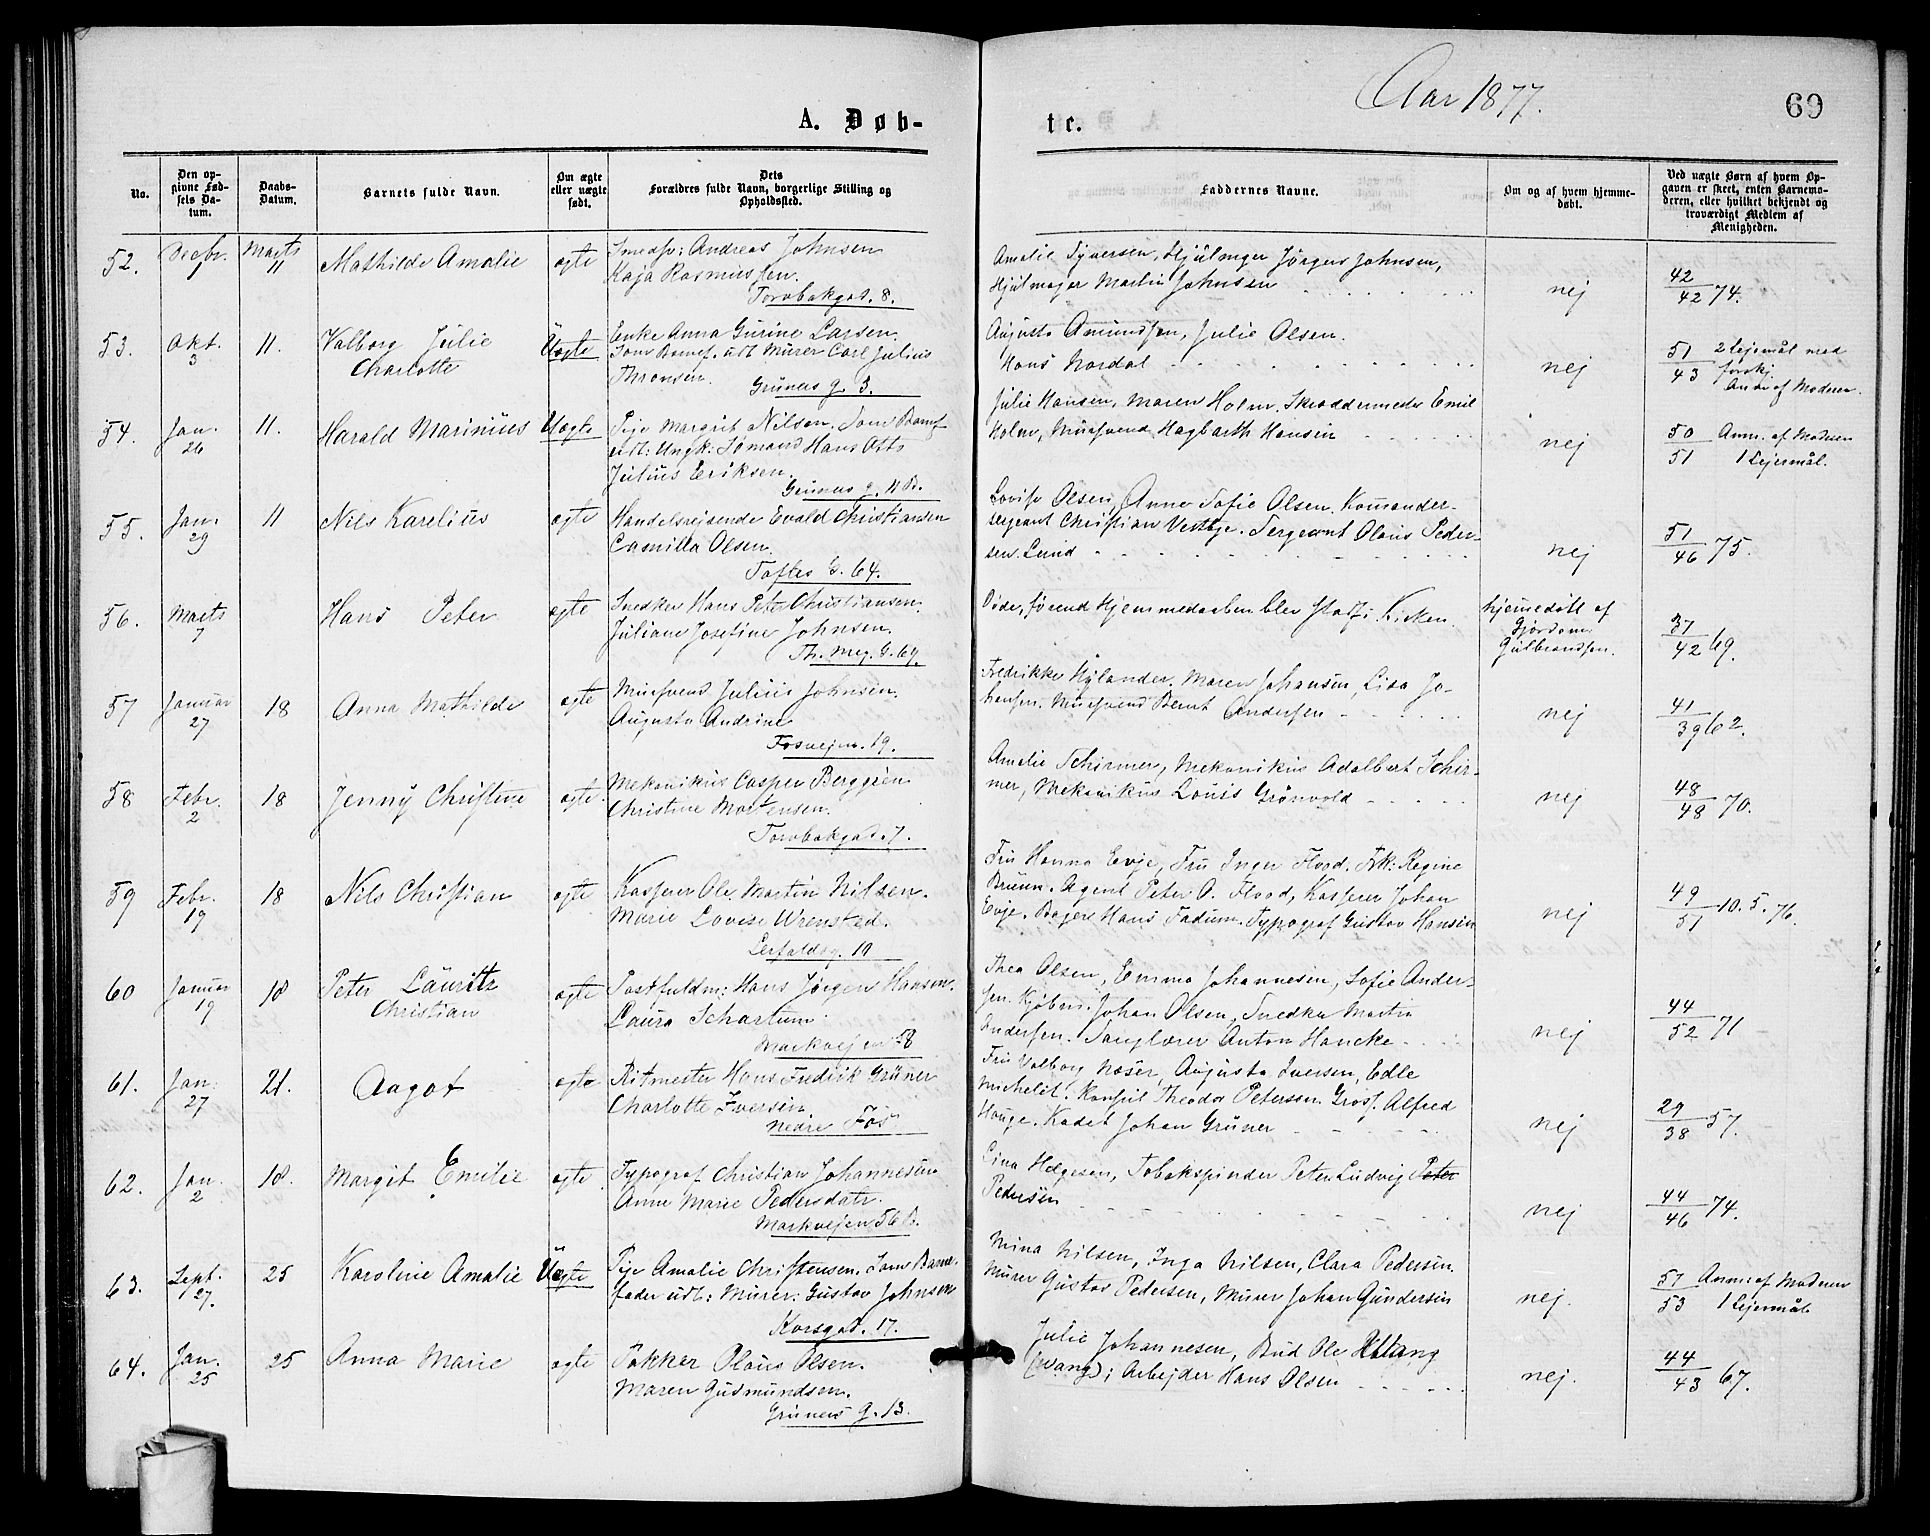 Aar 1877.
69
A. Døb-
te.
No.
Den op-
givne Fød-
sels Da-
tum.
Daabs-
Datum.
Barnets fulde Navn.
Om ægte
eller uægte
født.
Dets
Forældres fulde Navn, borgerlige Stilling og
Opholdssted.
Faddernes Navne.
Om og af hvem hjemme-
døbt.
Ved uægte Børn af hvem Op-
gaven er skeet, enten Barnemo-
deren, eller hvilket bekjendt og
troværdigt Medlem af
Menigheden.
52. Decbr. 1 Marts 11 Mathilde Amalie ægte Smedsv: Andreas Johnsen
Kaja Rasmussen.
Torvbakgad. 8.
Amalie Syversen, Hjulmager Jörgen Johnsen,
Hjulmager Martin Johnsen
nej
42/42 74.
53. Okt. 3 11. Valborg Julie
Charlotte
Uægte Enke Anna Gurine Larsen.
Som Barnef. udl. Murer Carl Julius
Thronsen.
Grüners g. 3.
Augusta Amundsen, Julie Olsen.
Hans Nordal
nej
51/43 2 Lejemål med
forskj.
Anm. af Moderen.
54. Jan. 26 11. Harald Marinius Uægte Pige Margrit Nilsen. Som Barnef
udl: Ungk: Sömand Hans Otto
Julius Eriksen.
Grüners g. 11 B.
Julie Hansen, Maren Holm. Skræddermester Emil
Holm, Mursvend Hagbarth Hansen
nej
50/51 Anm. af Moderen
1 Lejermål.
55. Jan. 29 11 Nils Karelius ægte Handelsrejsende Evald Christiansen
Camilla Olsen.
Toftes G. 64.
Lovise Olsen, Anne Sofie Olsen, Komander-
sergeant Christian Vestbye. Sergeant Olaus Peder-
sen. Lund
nej
51/46 75.
56. Marts 7 Hans Peter ægte Snedker Hans Peter Christiansen.
Juliane Josefine Johnsen.
Th. Mey. G. 69.
Døde, førend Hjemmedaaben blev stadf. i Kirken.
hjemmedøbt af
Gjordem.
Gulbrandsen.
37/42 69.
57 Januar 27 18 Anna Mathilde ægte Mursvend Julius Johnsen.
Augusta Andrine
Fosvejen. 19.
Fredrikke Hylander. Maren Johansen, Lisa Jo-
hansen. Mursvend Bernt Andersen
nej
41/39 62.
58 Febr. 2 18 Jenny Christine ægte Mekanikus Casper Berggren
Christine Mortensen.
Torvbakgad. 7.
Amalie Schirmer, Mekanikus Adalbert Schir-
mer, Mekanikus Louis Grönvold
nej
48/48 70.
59 Febr. 19 18 Nils Christian ægte Kasserer Ole Martin Nilsen.
Marie Lovise Wrensted.
Lerfaldsg. 10
Fru Hanna Evje, Fru Inger Flood. Frk: Regine
Bruun. Agent Peter O. Flood, Kasserer Johan
Evje. Bager Hans Fadum. Typograf Gustav Hansen
nej
49/51 10. 5. 76.
60 Januar 19 18 Peter Lauritz
Christian
ægte Postfuldm: Hans Jörgen Hansen.
Laura Schartum.
Markvejen 58
Thea Olsen, Emma Johannesen, Sofie Ander-
sen. Kjöbm. Johan Olsen, Snedker Martin
Andersen. Sanglærer Anton Hancke
nej
44/52 71
61. Jan. 27 21. Aagot ægte Ritmester Hans Fredrik Grüner
Charlotte Iversen.
Nedre Fos
Fru Valborg Næser, Augusta Iversen, Edle
Michelet. Konsul Theodor Petersen. Gross. Alfred
Houge. Kadet Johan Grüner
nej
29/38 57.
62. Jan. 2 18. Margit Emilie ægte Typograf Christian Johannesen
Anne Marie Pedersdatr.
Markvejen 56 B.
Lina Helgesen, Tobakspinder Peter Ludvig Peter
Pedersen
nej
44/46 74.
63. Sept. 27. 25 Karoline Amalie Uægte Pige Amalie Christensen. Som Barne-
fader udl: Murer: Gustav Johnsen
Korsgad. 17.
Mina Nilsen, Inga Nilsen, Clara Pedersen.
Murer Gustav Pedersen, Murer Johan Gundersen
nej.
51/53 Anm: af Moderen
1 Lejermål
64. Jan. 25 25 Anna Marie ægte Pakker Olaus Olsen.
Maren Gudmundsen.
Grüners g. 13.
Julie Johannesen, Bud Ole
(Evang); Arbejder Hans Olsen
nej.
44/43 67.